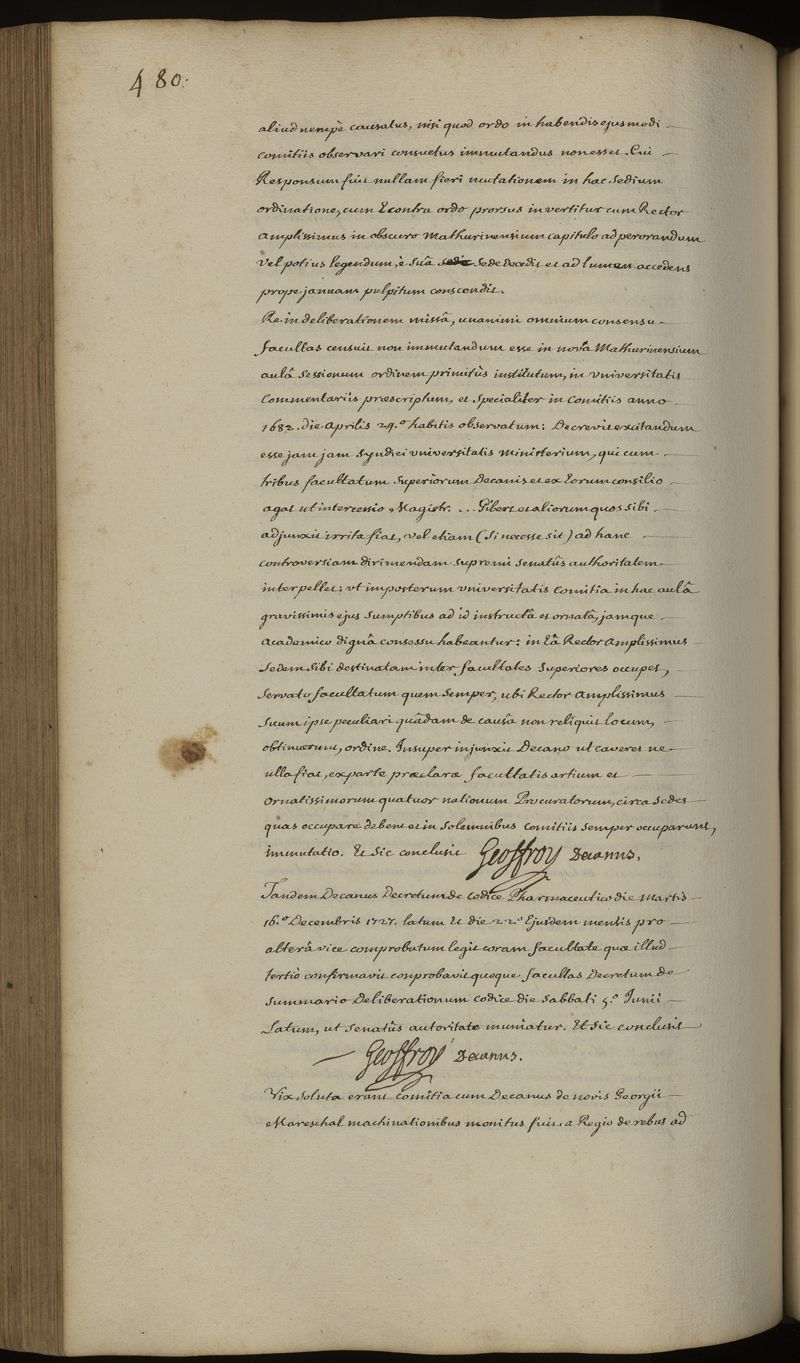 480.
aliud nempè causatus, nisi quod ordo in habendis ejusmodi
comitiis observari consuetus immutandus non esset. Cui
Responsum fuit nullam fieri mutationem in hac Sedium
ordinatione, cum Econtra ordo prorsus invertitur cum Rector
amplissimus in obscuro Mathurinensium capitulo ad perorandum
vel potius legendum, è suâ sede decedit et ad lumen accedens
prope januam pulpitum conscendit.
Re in deliberationem missâ, unanimi omnium consensu
facultas censuit non immutandum esse in novâ Mathurinensium
aulâ Sessionum ordinem primitùs institutum, in universitatis
Commentariis præscriptum, et Specialiter in Comitiis anno
1682. die Aprilis 24.º habitis observatum: Decrevit excitandum
esse jam jam Syndici universitatis Ministerium, qui cum
tribus facultatum Superiorum Decanis et ex Eorum consilio
agat ut intercessio Magistr. ... Gibert et aliorum quos sibi
adjunxit irrita fiat, vel etiam (Si necesse sit) ad hanc
controversiam dirimendam Supremi Senatûs authoritatem
interpellet; ut imposterum universitatis Comitia in hac aulâ
gravissimis ejus Sumptibus ad id instructâ et ornatâ, jamque
Academico dignâ consessu habeantur: in Eâ Rector Amplissimus
Sedem Sibi destinatam inter facultates Superiores occupet,
Servato facultatum quem Semper, ubi Rector Amplissimus
Suum ipse peculiari quâdam de causâ non reliquit locum,
obtinuerunt, ordine. Insuper injunxit Decano ut caveret ne
ulla fiat, ex parte præclaræ facultatis artium et
Ornatissimorum quatuor nationum Procuratorum, circa Sedes
quas occupare debent et in Solemnibus Comitiis Semper occuparunt,
immutatio. Et Sic conclusit Geoffroy Decanus.
Tandem Decanus Decretum de Codice Pharmaceutico die Martis
16.º Decembris 1727. latum Et die 22.º Ejusdem mensis pro
alterâ vice comprobatum legit coram facultate quæ illud
tertio confirmavit comprobavit quoque facultas Decretum de
Summario Deliberationum codice die Sabbati 5.º Junii
Latum, ut Senatûs autoritate muniatur. Et Sic conclusit
Geoffroy Decanus.
Vix Soluta erant Comitia cum Decanus de novis Georgii
Mareschal machinationibus monitus fuit a Regio de rebus ad